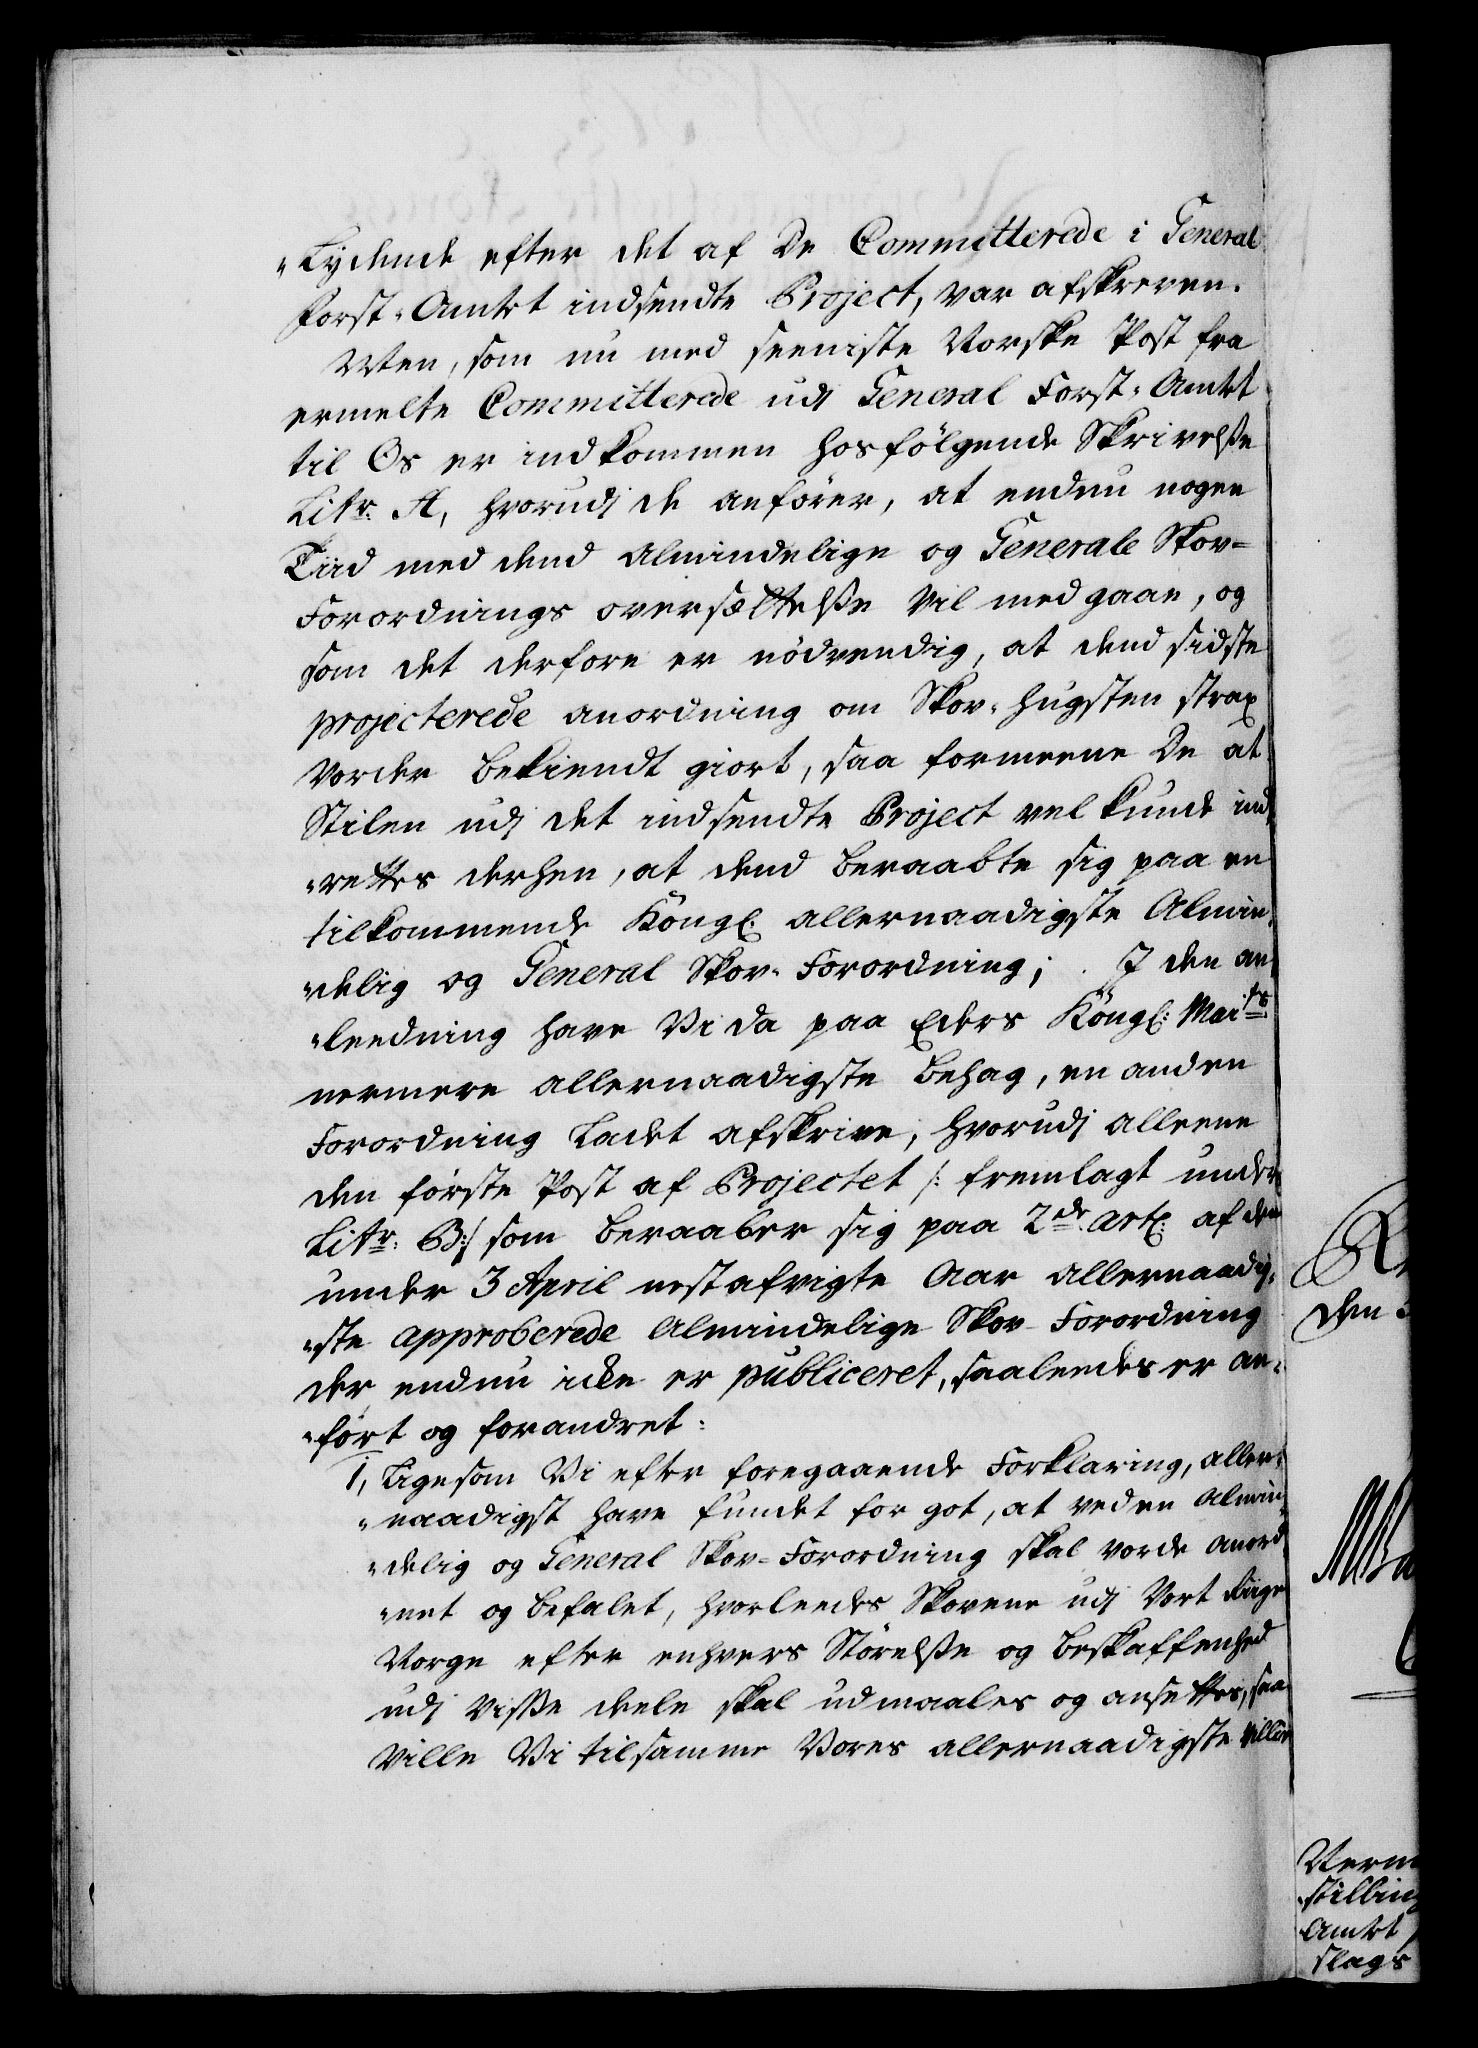 "Lydende efter det af De Committerede i General
Forst-Amtet indsendte Project, var afskreven.
Men, som nu med seeniste Norske Post fra
ermelte Committerede udj General Forst-Amtet
til Os er indkommen hosfölgende Skrivelße
Litr: A, hvorudj de anförer, at endnu nogen
Tiid med dend Almindelige og Generale Skov-
Forordnings oversættelße vil medgaae, og
som det derfore er nödvendig, at dend sidste
projecterede anordning om Skov-Hugsten strax
vorder bekiendt giort, saa formeene De at
Stilen udj det indsendte Project vel kunde ind
"rettes derhen, at dend beraabte sig paa en
tilkommende Köngl. allernaadigste Almin,
"delig og General Skov-Forordning; I den an
"leedning have Vi da paa Eders Köngl: Maits
nermere allernaadigste behag, en anden
Forordning ladet afskrive, hvorudj alleene
den förste Post af Projectet /: fremlagt under
Litr: B:/ som beraaber sig paa 2de art: af den
under 3 April nestafvigte Aar allernaadig,
"ste approberede Almindelige Skov-Forordning
der endnu icke er publiceret, saaleedes er an,
"fört og forandret:
1, Ligesom Vi efter foregaaende Forklaring, aller,
"naadigst have fundet for got, at ved en Almin,
"delig og General Skov-Forordning skal vorde anord
"net og befalet, hvorleedes Skovene udj Vort Riige
Norge efter enhvers Störelße og beskaffenhed
udj viße deele skal udmaales og ansettes, saa
ville Vi tilsamme Vores allernaadigste villie
den
Amtet
slags